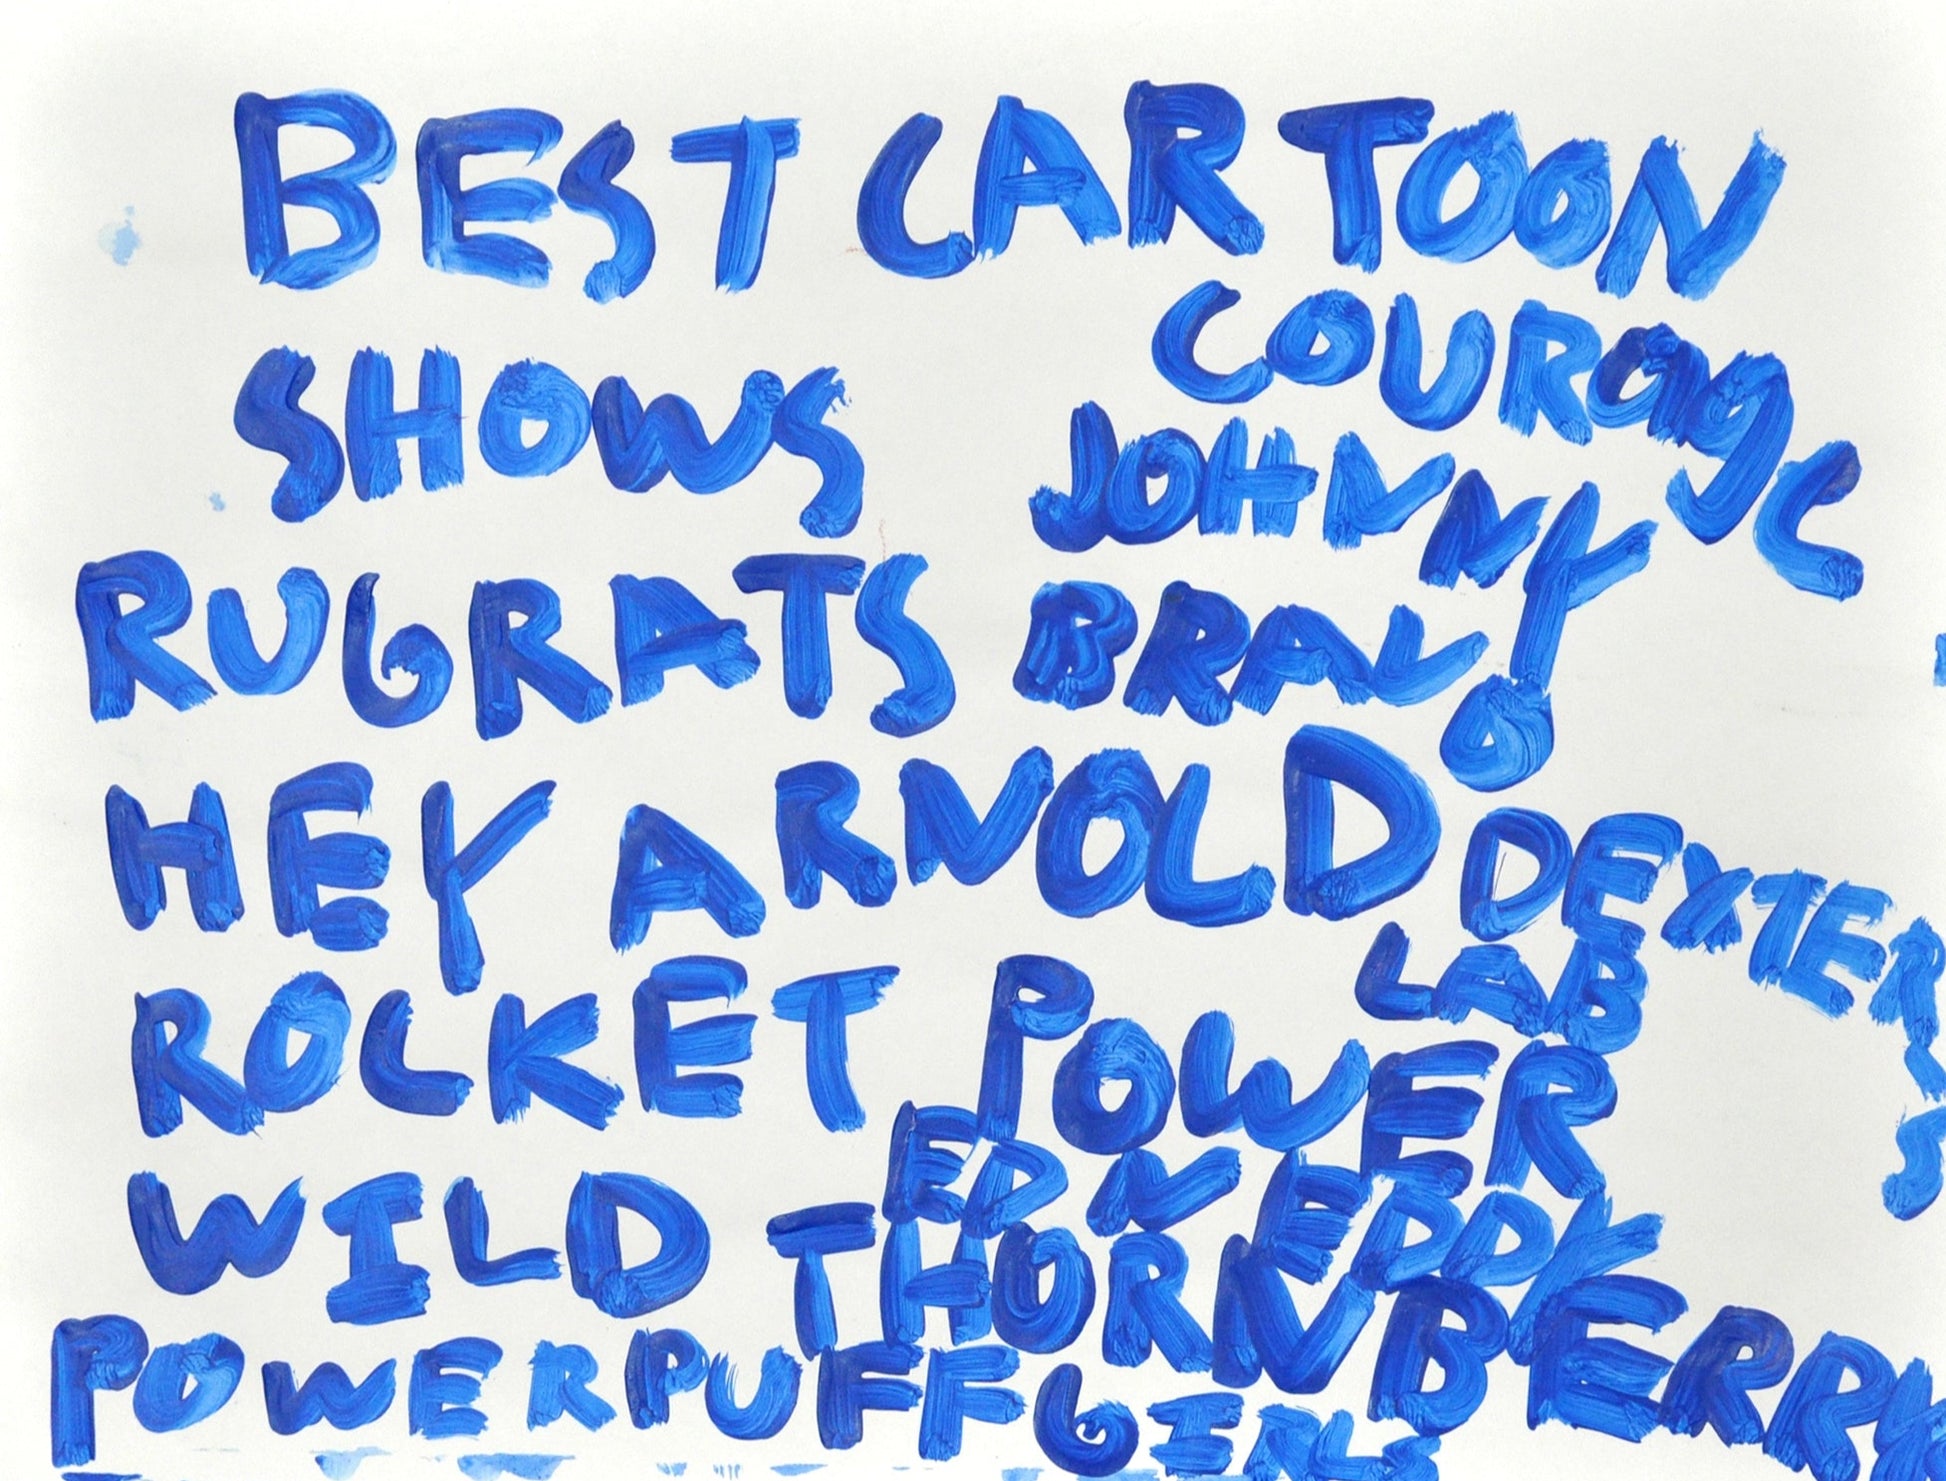 BEST CARTOON
SHOWS
COURAGE
JOHNNY
BRAVO
RUGRATS
HEY ARNOLD
DEXTERS
LAB
ROCKET POWER
ED N EDDY
WILD THORNBERRY
POWERPUFF GIRLS